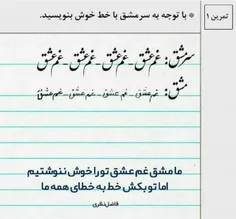 تمرین ۱
* با توجه به سرمشق با خط خوش بنویسید.
سرمشق: غم عشق - غم عشق - غم عشق - غم عشق
مشق: غم عشق - غم عشق - غم عشق - غم عشق
ما مشق غم عشق تو را خوش ننوشتیم
اما تو بکش خط به خطای همه ما
فاضل نظری